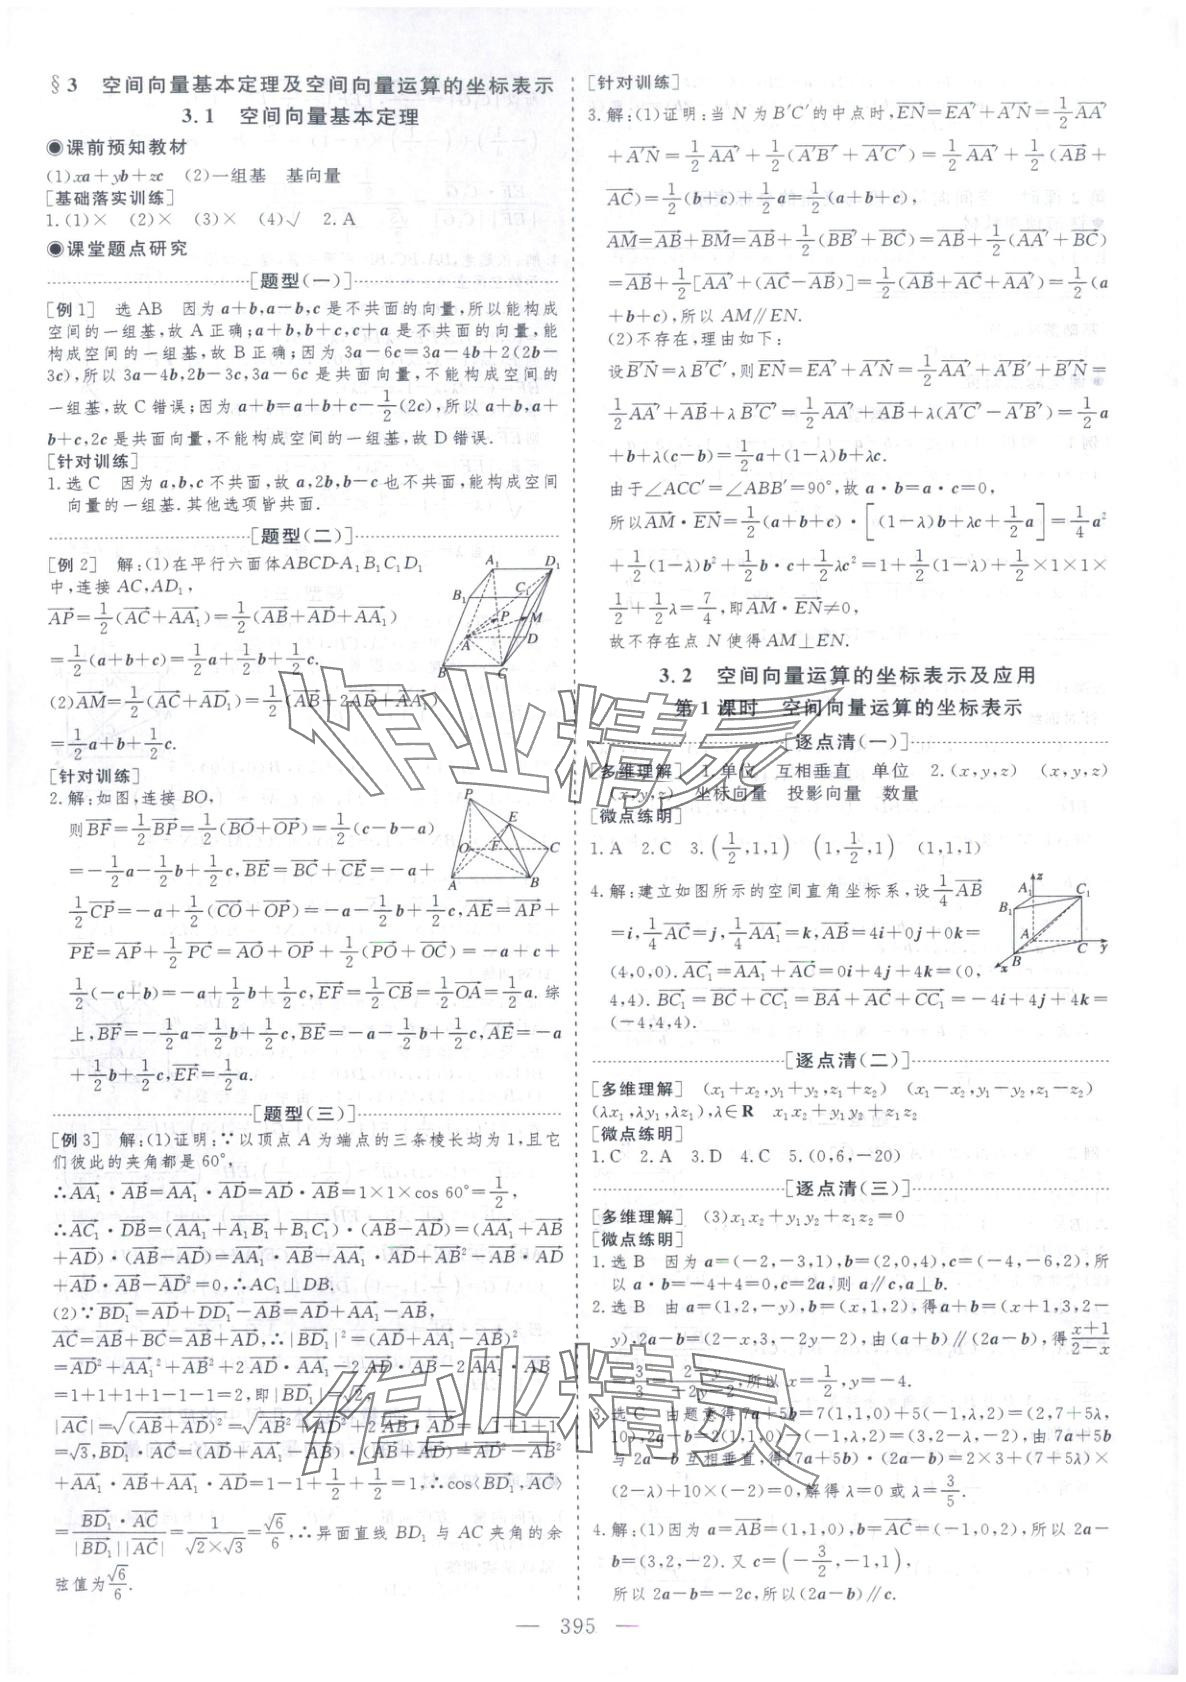 §3 空间向量基本定理及空间向量运算的坐标表示
3.1 空间向量基本定理
◉课前预知教材
(1)xa+yb+zc (2)一组基 基向量
[基础落实训练]
1.(1)× (2)× (3)× (4)√ 2.A
◉课堂题点研究
[题型(一)]
[例1] 选AB 因为a+b,a-b,c是不共面的向量,所以能构成
空间的一组基,故A正确;a+b,b+c,c+a是不共面的向量,能
构成空间的一组基,故B正确;因为3a-6c=3a-4b+2(2b-
3c),所以3a-4b,2b-3c,3a-6c是共面向量,不能构成空间的
一组基,故C错误;因为a+b=a+b+c-1/2(2c),所以a+b,a+
b+c,2c是共面向量,不能构成空间的一组基,故D错误.
[针对训练]
1.选C 因为a,b,c不共面,故a,2b,b-c也不共面,能构成空间
向量的一组基.其他选项皆共面.
[题型(二)]
[例2] 解:(1)在平行六面体ABCD-A₁B₁C₁D₁
中,连接AC,AD₁,
AP=1/2(AC+AA₁)=1/2(AB+AD+AA₁)
=1/2(a+b+c)=1/2a+1/2b+1/2c.
(2)AM=1/2(AC+AD₁)=1/2(AB+2AD+AA₁)
=1/2a+b+1/2c.
[针对训练]
2.解:如图,连接BO,
则BF=1/2BP=1/2(BO+OP)=1/2(c-b-a)
=-1/2a-1/2b+1/2c,BE=BC+CE=-a+
1/2CP=-a+1/2(CO+OP)=-a-1/2b+1/2c,AE=AP+
PE=AP+1/2PC=AO+OP+1/2(PO+OC)=-a+c+
1/2(-c+b)=-a+1/2b+1/2c,EF=1/2CB=1/2OA=1/2a.综
上,BF=-1/2a-1/2b+1/2c,BE=-a-1/2b+1/2c,AE=-a
+1/2b+1/2c,EF=1/2a.
[题型(三)]
[例3] 解:(1)证明:∵以顶点A为端点的三条棱长均为1,且它
们彼此的夹角都是60°,
∴AA₁·AB=AA₁·AD=AD·AB=1×1×cos 60°=1/2,
∴AC₁·DB=(AA₁+A₁B₁+B₁C₁)·(AB-AD)=(AA₁+AB
+AD)·(AB-AD)=AA₁·AB-AA₁·AD+AB²-AB·AD
+AD·AB-AD²=0,∴AC₁⊥DB.
(2)∵BD₁=AD+DD₁-AB=AD+AA₁-AB,
AC=AB+BC=AB+AD,∴|BD₁|²=(AD+AA₁-AB)²
=AD²+AA₁²+AB²+2AD·AA₁-2AD·AB-2AA₁·AB
=1+1+1+1-1-1=2,即|BD₁|=√2,
|AC|=√(AB+AD)²=√AB²+AD²+2AB·AD=√1+1+1
=√3,BD₁·AC=(AD+AA₁-AB)·(AB+AD)=AD²-AB²
+AA₁·AB+AA₁·AD=1-1+1/2+1/2=1,∴cos⟨BD₁,AC⟩
=BD₁·AC/|BD₁||AC|=1/√2×√3=√6/6,∴异面直线BD₁与AC夹角的余
弦值为√6/6.
[针对训练]
3.解:(1)证明:当N为B′C′的中点时,EN=EA′+A′N=1/2AA′
+A′N=1/2AA′+1/2(A′B′+A′C′)=1/2AA′+1/2(AB+
AC)=1/2(b+c)+1/2a=1/2(a+b+c),
AM=AB+BM=AB+1/2(BB′+BC)=AB+1/2(AA′+BC)
=AB+1/2[AA′+(AC-AB)]=1/2(AB+AC+AA′)=1/2(a
+b+c),所以AM∥EN.
(2)不存在,理由如下:
设B′N=λB′C′,则EN=EA′+A′N=1/2AA′+A′B′+B′N=
1/2AA′+AB+λB′C′=1/2AA′+AB+λ(A′C′-A′B′)=1/2a
+b+λ(c-b)=1/2a+(1-λ)b+λc.
由于∠ACC′=∠ABB′=90°,故a·b=a·c=0,
所以AM·EN=1/2(a+b+c)·[(1-λ)b+λc+1/2a]=1/4a²
+1/2(1-λ)b²+1/2b·c+1/2λc²=1+1/2(1-λ)+1/2×1×1×
1/2+1/2λ=7/4,即AM·EN≠0,
故不存在点N使得AM⊥EN.
3.2 空间向量运算的坐标表示及应用
第1课时 空间向量运算的坐标表示
[逐点清(一)]
[多维理解] 1.单位 互相垂直 单位 2.(x,y,z) (x,y,z)
(x,y,z) 坐标向量 投影向量 数量
[微点练明]
1.A 2.C 3.(1/2,1,1) (1,1/2,1) (1,1,1)
4.解:建立如图所示的空间直角坐标系,设1/4AB
=i,1/4AC=j,1/4AA₁=k,AB=4i+0j+0k=
(4,0,0).AC₁=AA₁+AC=0i+4j+4k=(0,
4,4).BC₁=BC+CC₁=BA+AC+CC₁=-4i+4j+4k=
(-4,4,4).
[逐点清(二)]
[多维理解] (x₁+x₂,y₁+y₂,z₁+z₂) (x₁-x₂,y₁-y₂,z₁-z₂)
(λx₁,λy₁,λz₁),λ∈R x₁x₂+y₁y₂+z₁z₂
[微点练明]
1.C 2.A 3.D 4.C 5.(0,6,-20)
[逐点清(三)]
[多维理解] (3)x₁x₂+y₁y₂+z₁z₂=0
[微点练明]
1.选B 因为a=(-2,-3,1),b=(2,0,4),c=(-4,-6,2),所
以a·b=-4+4=0,c=2a,则a∥c,a⊥b.
2.选B 由a=(1,2,-y),b=(x,1,2),得a+b=(x+1,3,2-
y),2a-b=(2-x,3,-2y-2),由(a+b)∥(2a-b),得x+1/2-x
=3/3=2-y/-2y-2,所以x=1/2,y=-4.
3.选C 由题意得7a+5b=7(1,1,0)+5(-1,λ,2)=(2,7+5λ,
10),2a-b=2(1,1,0)-(-1,λ,2)=(3,2-λ,-2),由7a+5b
与2a-b互相垂直,得(7a+5b)·(2a-b)=2×3+(7+5λ)×
(2-λ)+10×(-2)=0,解得λ=0或λ=3/5.
4.解:(1)因为a=AB=(1,1,0),b=AC=(-1,0,2),所以2a-
b=(3,2,-2).又c=(-3/2,-1,1),
所以2a-b=-2c,所以(2a-b)∥c.
— 395 —
作业精灵
作业精灵
A₁
D₁
B₁
C₁
P
M
A
D
B
C
P
E
O
F
C
A
B
z
A₁
C₁
B₁
A
B
C
x
y